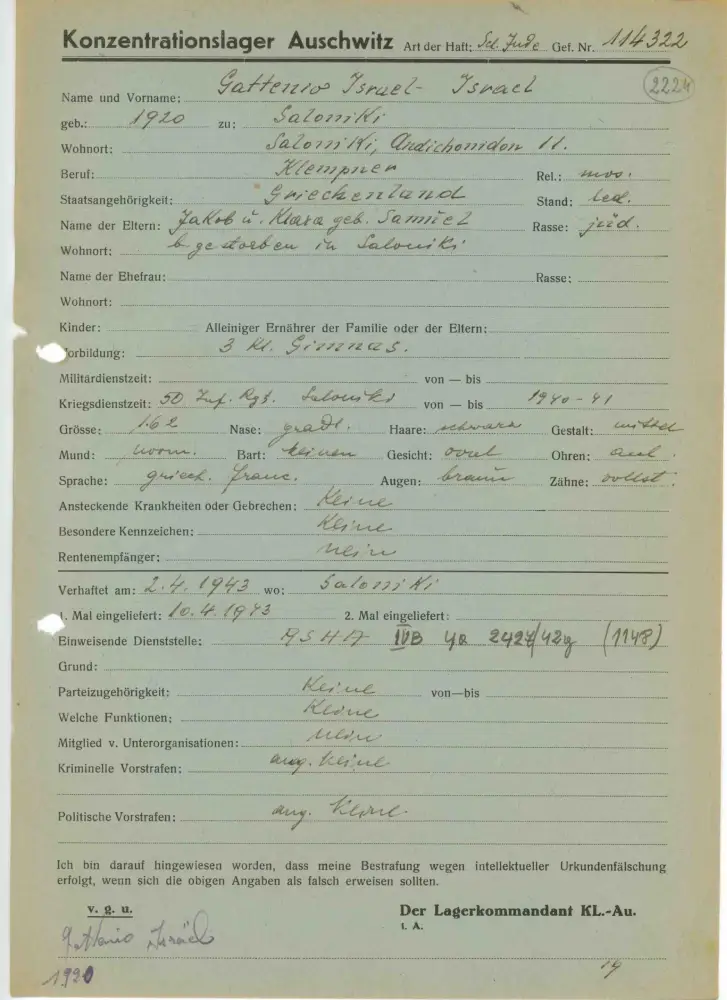 Konzentrationslager Auschwitz Art der Haft: Sch. Jude Gef. Nr. 114322
2224
Name und Vorname: Gattenio Israel - Israel
geb.: 1920 zu: Saloniki
Wohnort: Saloniki, Andichonidon 11.
Beruf: Klempner Rel.: mos.
Staatsangehörigkeit: Griechenland Stand: led.
Name der Eltern: Jakob u. Klara geb. Samuel Rasse: jüd.
Wohnort: b. gestorben in Saloniki
Name der Ehefrau: Rasse:
Wohnort:
Kinder: Alleiniger Ernährer der Familie oder der Eltern:
orbildung: 3 Kl. Gimnas.
Militärdienstzeit: von — bis
Kriegsdienstzeit: 50 Inf. Rgt. Saloniki von — bis 1940-41
Grösse: 162 Nase: gradl. Haare: schwarz Gestalt: mittel
Mund: norm. Bart: keinen Gesicht: oval Ohren: anl.
Sprache: griech. franc. Augen: braun Zähne: vollst.
Ansteckende Krankheiten oder Gebrechen: Keine
Besondere Kennzeichen: Keine
Rentenempfänger: nein
Verhaftet am: 2.4.1943 wo: Saloniki
1. Mal eingeliefert: 10.4.1943 2. Mal eingeliefert:
Einweisende Dienststelle: RSHA IVB 4a 2427/42g (1148)
Grund:
Parteizugehörigkeit: Keine von—bis
Welche Funktionen: Keine
Mitglied v. Unterorganisationen: nein
Kriminelle Vorstrafen: ang. keine
Politische Vorstrafen: ang. Keine
Ich bin darauf hingewiesen worden, dass meine Bestrafung wegen intellektueller Urkundenfälschung
erfolgt, wenn sich die obigen Angaben als falsch erweisen sollten.
v. g. u. Der Lagerkommandant KL.-Au.
I. A.
Gattenio Israël
1920
19